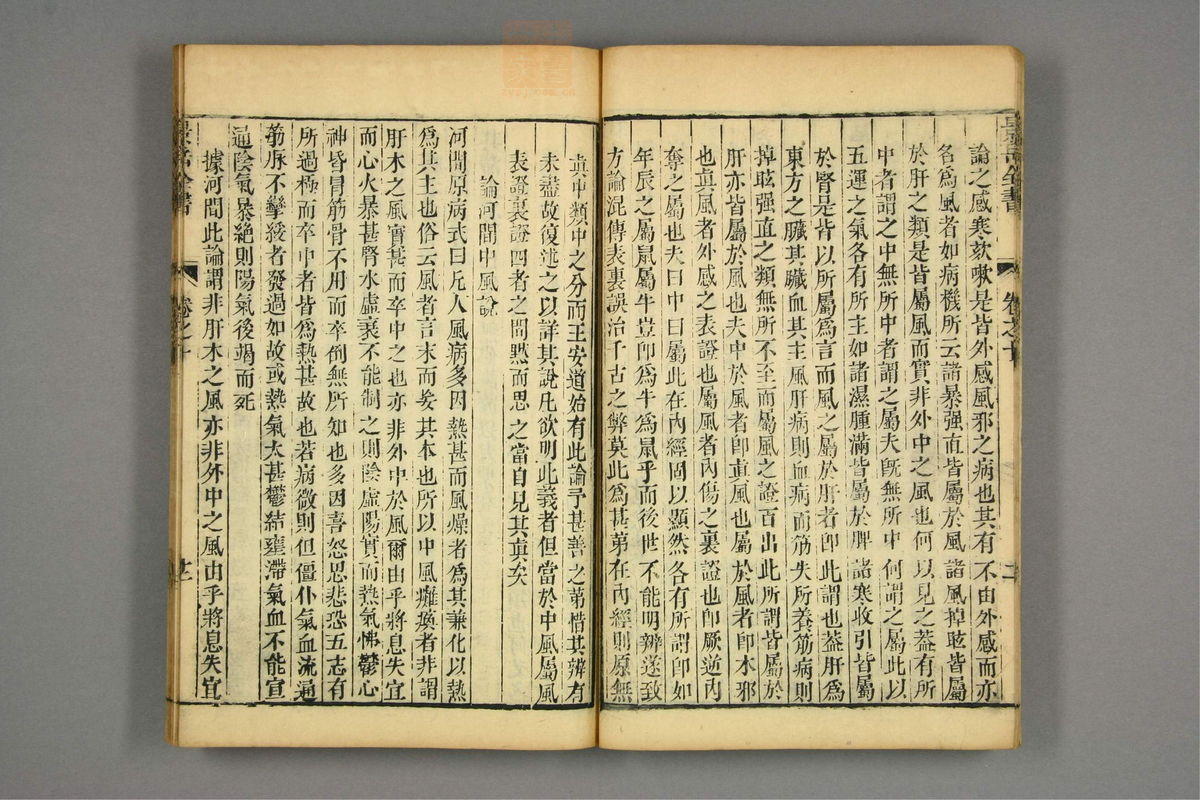 論之感寒欬嗽是皆外感風邪之病也其有不由外感而亦
名為風者如病機所云諸暴强直皆屬於風諸風掉眩皆屬
於肝之類是皆屬風而實非外中之風也何以見之葢有所
中者謂之中無所中者謂之屬夫旣無所中何謂之屬此以
五運之氣各有所主如諸濕腫滿皆屬於脾諸寒收引皆屬
於腎是皆以所屬為言而風之屬於肝者卽此謂也葢肝為
東方之臟其臟血其主風肝病則血病而筋失所養筋病則
掉眩强直之類無所不至而屬風之證百出此所謂皆屬於
肝亦皆屬於風也夫中於風者卽眞風也屬於風者卽木邪
也眞風者外感之表證也屬風者內傷之裏證也卽厥逆內
奪之屬也夫曰中曰屬此在內經固以顯然各有所謂卽如
年辰之屬鼠屬牛豈卽為牛為鼠乎而後世不能明辨遂致
方論混傳表裏誤治千古之弊莫此為甚第在內經則原無
眞中類中之分而王安道始有此論予甚善之第惜其辨有
未盡故復述之以詳其說凡欲明此義者但當於中風屬風
表證裏證四者之間默而思之當自見其眞矣
論河間中風說
河間原病式曰凡人風病多因熱甚而風燥者為其兼化以熱
為其主也俗云風者言末而忘其本也所以中風癱瘓者非謂
肝木之風實甚而卒中之也亦非外中於風爾由乎將息失宜
而心火暴甚腎水虛衰不能制之則陰虛陽實而熱氣怫鬱心
神昏冒筋骨不用而卒倒無所知也多因喜怒思悲恐五志有
所過極而卒中者皆為熱甚故也若病微則但僵仆氣血流通
筋脉不攣緩者發過如故或熱氣太甚鬱結壅滯氣血不能宣
通陰氣暴絶則陽氣後竭而死
據河間此論謂非肝木之風亦非外中之風由乎將息失宜
景岳全書
卷之十
十二